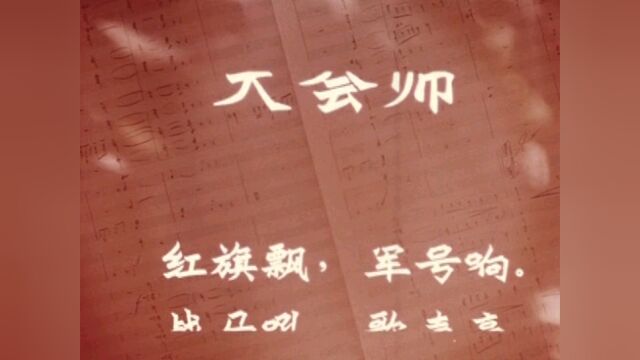 大会师
红旗飘，军号响。